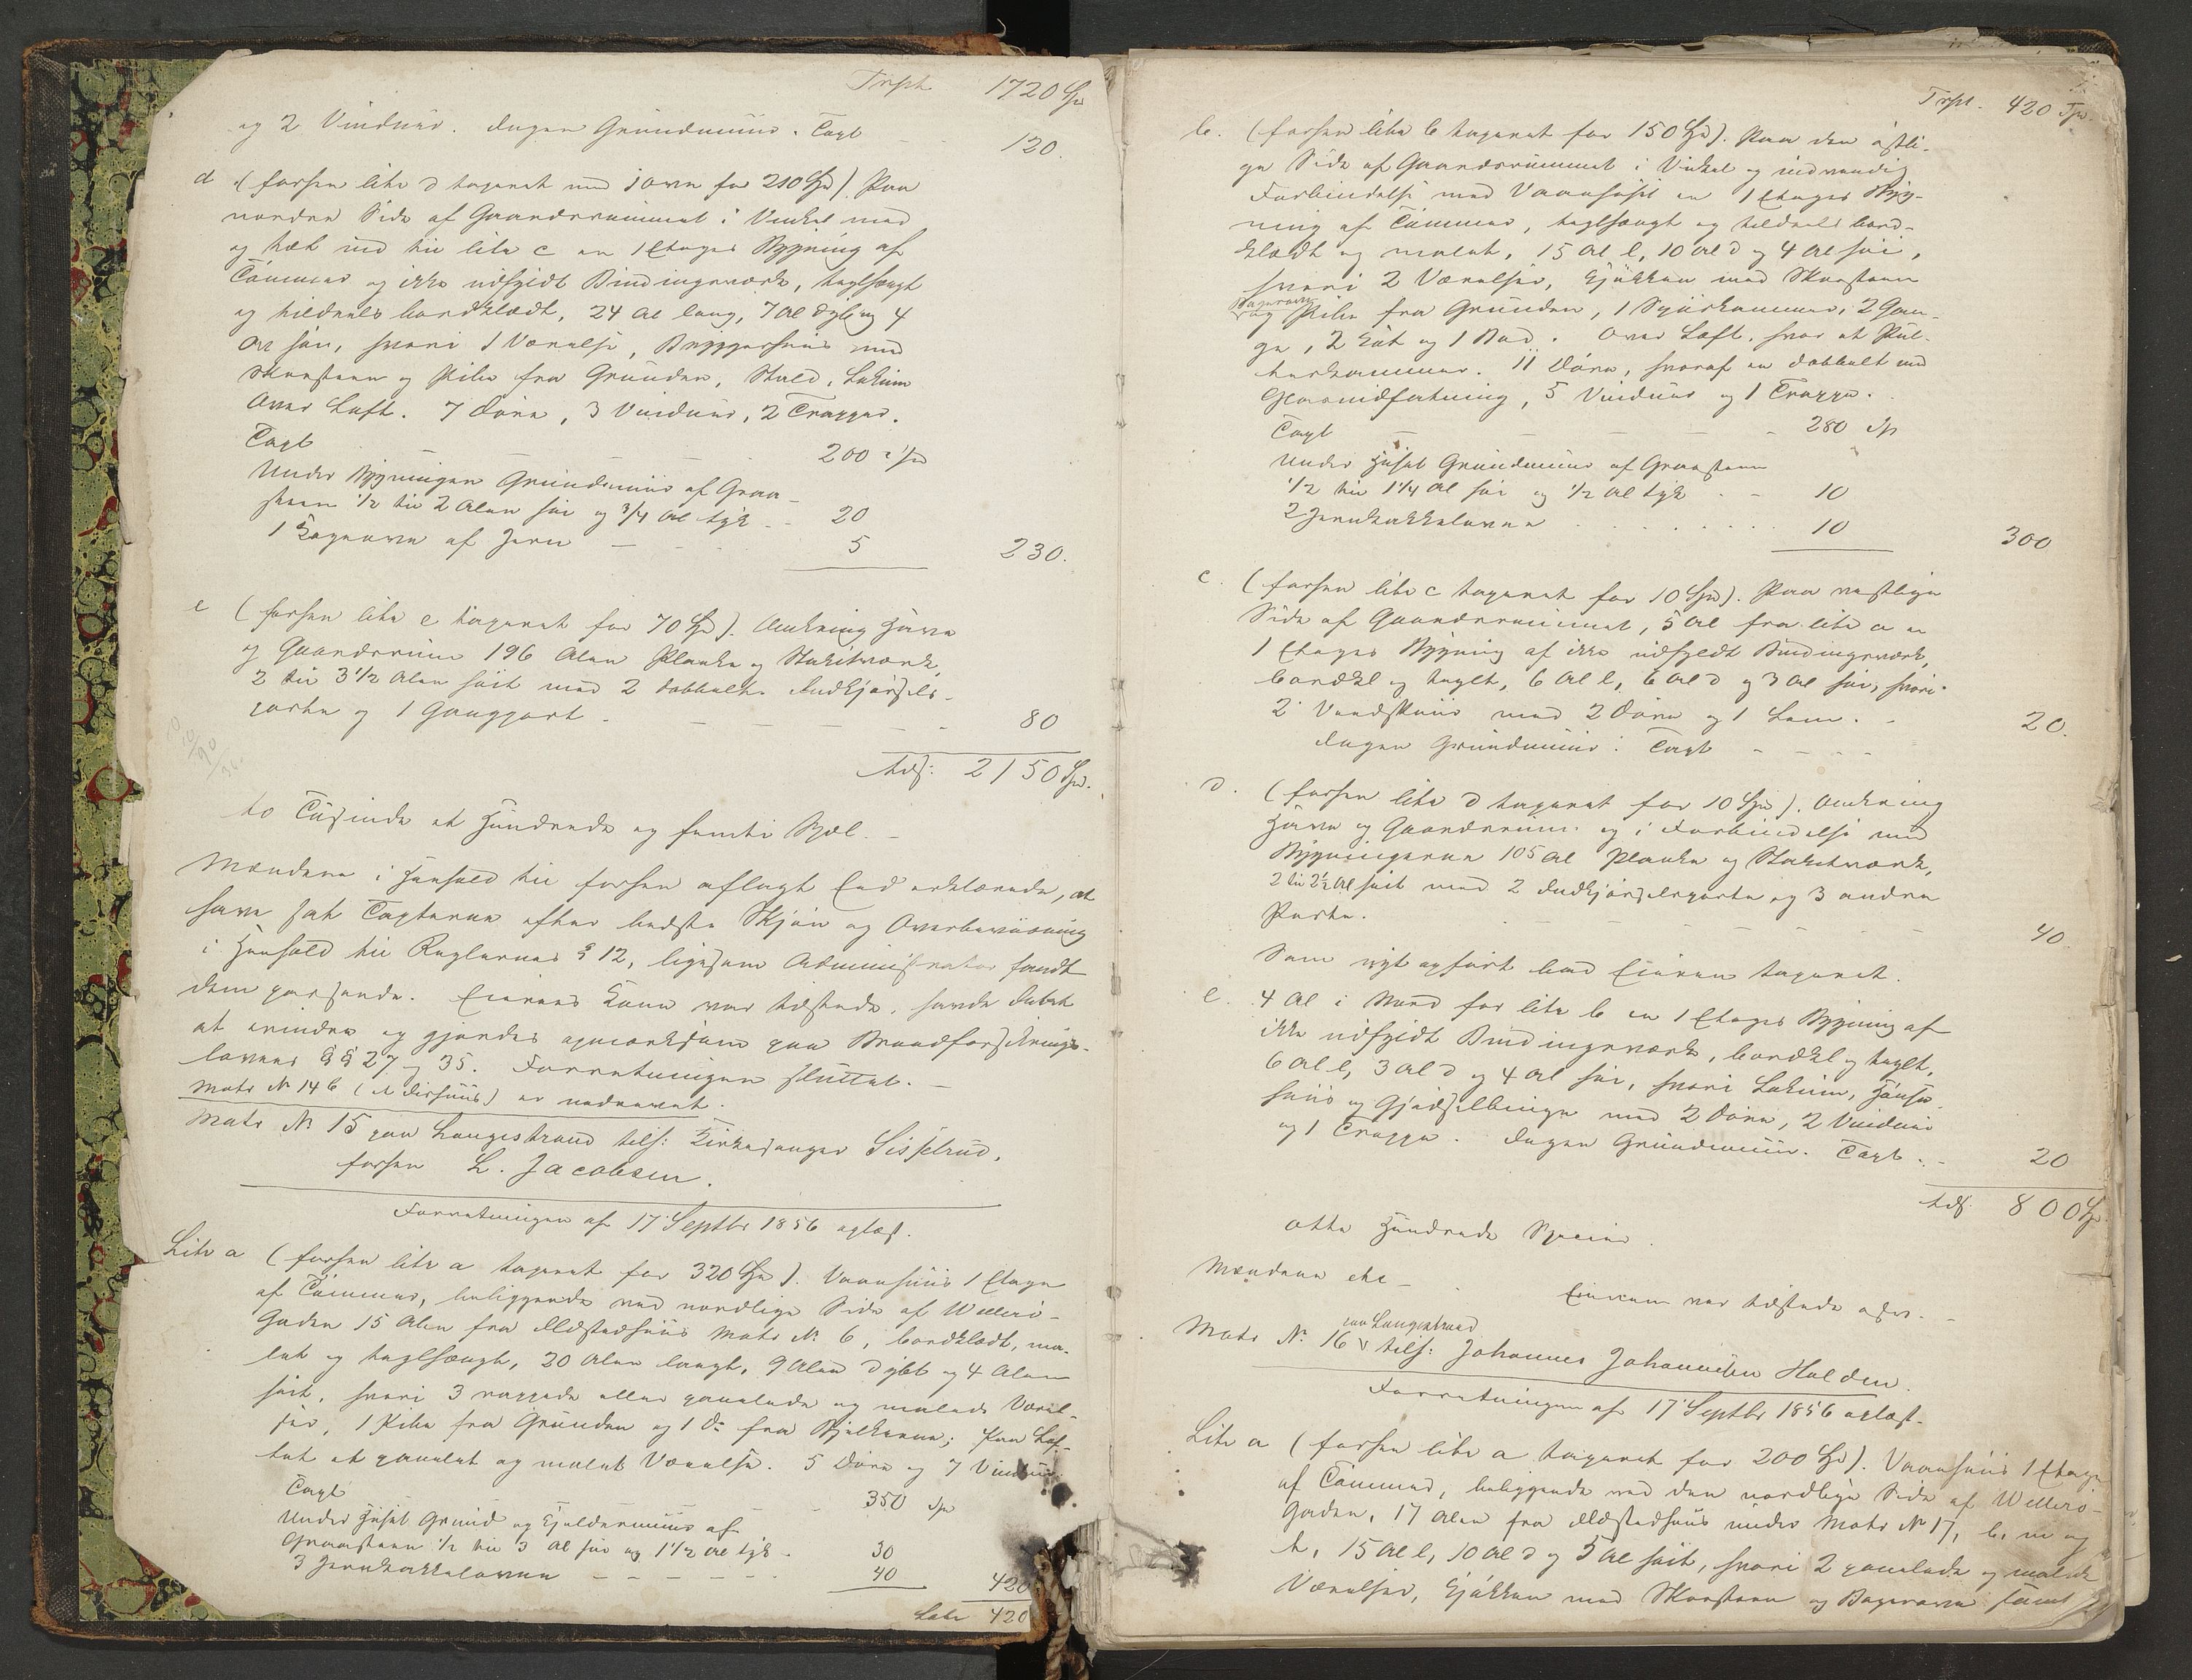 Trpt 1720 Spd
og 2 Vinduer. Ingen Grundmuur. Taxt 120.
d (forhen litr d taxeret med 1 ovn for 210 Spd). Paa
nordre Side af Gaardsrummet i Vinkel med
og tæt ved litr c en 1 Etages Bygning af
Tømmer og ikke udfyldt Bindingsværk, teglhængt
og tildeels bordklædt, 24 Al lang, 7 Al dyb og 4
Al høi, hvori 1 Værelse, Bryggerhuus med
Skorsteen og Pibe fra Grunden, Stald, Lokum
Over Loft. 7 Døre, 3 Vinduer, 2 Trapper.
Taxt 200 Spd
Under Bygningen Grundmuur af Graa-
steen 1/2 til 2 Alen høi og 3/4 Al tyk 20
1 Kogeovn af Jern 5 230.
e (forhen litr e taxeret for 70 Spd). Omkring Have
og Gaardsrum 196 Alen Planke og Stakitværk,
2 til 3 1/2 Alen høit med 2 dobbelte Indkjørsels-
porte og 1 Gangport 80
tils: 2150 Spd.
to Tusinde et Hundrede og femti Spdl.
Mændene i Henhold til forhen aflagt Eed erklærede, at
have sat Taxterne efter bedste Skjøn og Overbeviisning
i Henhold til Reglernes § 12, ligesom Administrator fandt
dem passende. Eierens Kone var tilstede, havde Intet
at erindre og gjordes opmærksom paa Brandforsikrings-
lovens §§ 27 og 35. Forretningen sluttet.
Matr No 14 b er nedrevet.
Matr No 15 paa Langestrand tilh: Kirkesanger Sisselrud,
forhen L. Jacobsen.
Forretningen af 17 Septbr 1856 oplæst.
Litr a (forhen litr a taxeret for 320 Spd). Vaanhuus 1 Etage
af Tømmer, beliggende ved nordlige Side af Wellerø-
Gaden 15 Alen fra Ildstedhuus Matr No 6, bordklædt, ma-
let og teglhængt, 20 Alen langt, 9 Alen dybt og 4 Alen
høit, hvori 3 rappede eller panelede og malede Værel-
ser, 1 Pibe fra Grunden og 1 Do fra Bjelkerne; Paa Lof-
tet et panelet og malet Værelse. 5 Døre og 7 Vinduer.
Taxt 350 Spd
Under Huset Grund og Kjeldermuur af
Graasteen 1/2 til 3 Al høi og 1 1/2 Al tyk 30
3 Jernkakkelovne 40 420
Latr 420
Trpt. 420 Spd.
b. (forhen litr b taxeret for 150 Spd). Paa den østli-
ge Side af Gaardsrummet i Vinkel og indvendig
Forbindelse med Vaanhuset en 1 Etages Byg-
ning af Tømmer, teglhængt og tildeels bord-
klædt og malet, 15 Al l, 10 Al d og 4 Al høi,
hvori 2 Værelser, Kjøkken med Skorsteen
Bagerovn
og Pibe fra Grunden, 1 Spiiskammer, 2 Gan-
ge, 2 Kot og 1 Bod. Over Loft, hvor et Pul-
terkammer. 11 Døre, hvoraf en dobbelt med
Glasindfatning, 5 Vinduer og 1 Trappe.
Taxt 280 Sp
Under Huset Grundmuur af Graasteen
1/2 til 1 1/4 Al høi og 1/2 Al tyk 10
2 Jernkakkelovne 10 300
c. (forhen litr c taxeret for 10 Spd). Paa vestlige
Side af Gaardsrummet, 5 Al fra litr a en
1 Etages Bygning af ikke udfyldt Bindingsværk,
bordkl og teglt, 6 Al l, 6 Al d og 3 Al høi, hvori
2 Vedskuur med 2 Døre og 1 Lem.
Ingen Grundmuur. Taxt 20.
d. (forhen litr d taxeret for 10 Spd). Omkring
Have og Gaardsrum og i Forbindelse med
Bygningerne 105 Al Planke og Stakitværk,
2 til 2 1/2 Al høit med 2 Indkjørselsporte og 3 andre
Porte. 40
Som nyt opført bad Eieren taxeret.
e. 4 Al i Nord for litr b en 1 Etages Bygning af
ikke udfyldt Bindingsværk, bordkl og teglt,
6 Al l, 3 Al d og 4 Al høi, hvori Lokum, Hønse-
huus og Gjødselbinge med 2 Døre, 2 Vinduer
og 1 Trappe. Ingen Grundmuur. Taxt 20
tils. 800 Spd
otte Hundrede Species.
Mændene etc
Eieren var tilstede osv.
paa Langestrand
Matr No 16 tilh: Johannes Johannesen Holden.
Forretningen af 17 Septbr 1856 oplæst.
Litr a (forhen litr a taxeret for 200 Spd). Vaanhuus 1 Etage
af Tømmer, beliggende ved den nordlige Side af Wellerø-
Gaden, 17 Alen fra Ildstedhuus under Matr No 17, b, m og
t, 15 Al l, 10 Al d og 5 Al høit, hvori 2 panelede og malede
Værelser, Kjøkken med Skorsteen og Bagerovn samt